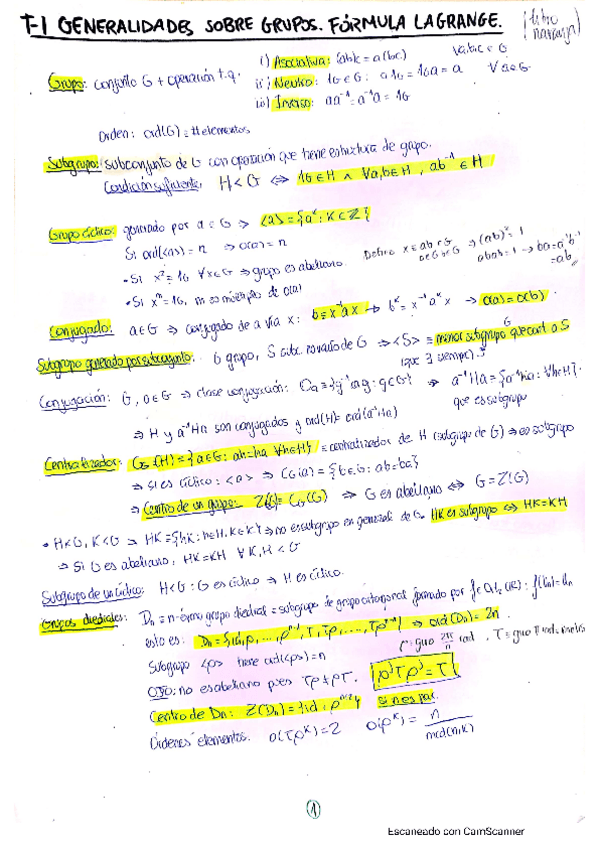 T-1 GENERALIDADES SOBRE GRUPOS. FÓRMULA LAGRANGE. (libro naranja)
Grupo: conjunto G + operación t.q.
i) Asociativa: (ab)c = a(bc) ∀a,b,c ∈ G
ii) Neutro: 1G ∈ G: a1G = 1Ga = a ∀a∈G
iii) Inverso: aa⁻¹ = a⁻¹a = 1G
Orden: ord(G) = #elementos
Subgrupo: subconjunto de G con operación que tiene estructura de grupo.
Condición suficiente: H<G ⇔ 1G∈H ∧ ∀a,b∈H, ab⁻¹∈H
Grupo cíclico: generado por a∈G ⇒ <a> = {aᵏ: K∈ℤ}
Si ord(<a>) = n ⇒ o(a) = n
• Si x² = 1G ∀x∈G ⇒ grupo es abeliano.
• Si xᵐ = 1G, m es múltiplo de o(a)
Conjugado: a∈G ⇒ conjugado de a vía x: b = x⁻¹ax → bᵏ = x⁻¹aᵏx ⇒ o(a) = o(b)
Subgrupo generado por subconjunto: G grupo, S subc. no vacío de G ⇒ <S> = menor subgrupo que cont. a S
(que ∃ siempre).
Conjugación: G, a∈G ⇒ clase conjugación:
que es subgrupo
⇒ H y a⁻¹Ha son conjugados y ord(H) = ord(a⁻¹Ha)
Centralizador: CG(H) = {a∈G: ah=ha ∀h∈H} = centralizador de H (subgrupo de G) ⇒ es subgrupo
⇒ Si es cíclico: <a> ⇒ CG(a) = {b∈G: ab=ba}
⇒ Centro de un grupo: Z(G) = CG(G) ⇒ G es abeliano ⇔ G = Z(G)
• H<G, K<G ⇒ HK = {hk: h∈H, k∈K} ⇒ no es subgrupo en general de G. HK es subgrupo ⇔ HK=KH
⇒ Si G es abeliano, HK=KH ∀K,H<G
Subgrupo de un cíclico: H<G : G es cíclico ⇒ H es cíclico.
Grupos diedrales: Dn = n-ésimo grupo diedral = subgrupo de grupo ortogonal formado por
esto es: Dn = {id, ρ, ..., ρⁿ⁻¹, τ, τρ, ..., τρⁿ⁻¹} ⇒ ord(Dn) = 2n
ρ: giro 2π/n rad, τ = giro π rad
Subgrupo <ρ> tiene ord(<ρ>) = n
OJO: no es abeliano pues τρ ≠ ρτ. ρʲτρʲ = τ
Centro de Dn: Z(Dn) = {id, ρⁿ/²} si n es par.
Órdenes elementos: o(τρᵏ) = 2 o(ρᵏ) = n/mcd(n,k)
1
Escaneado con CamScanner